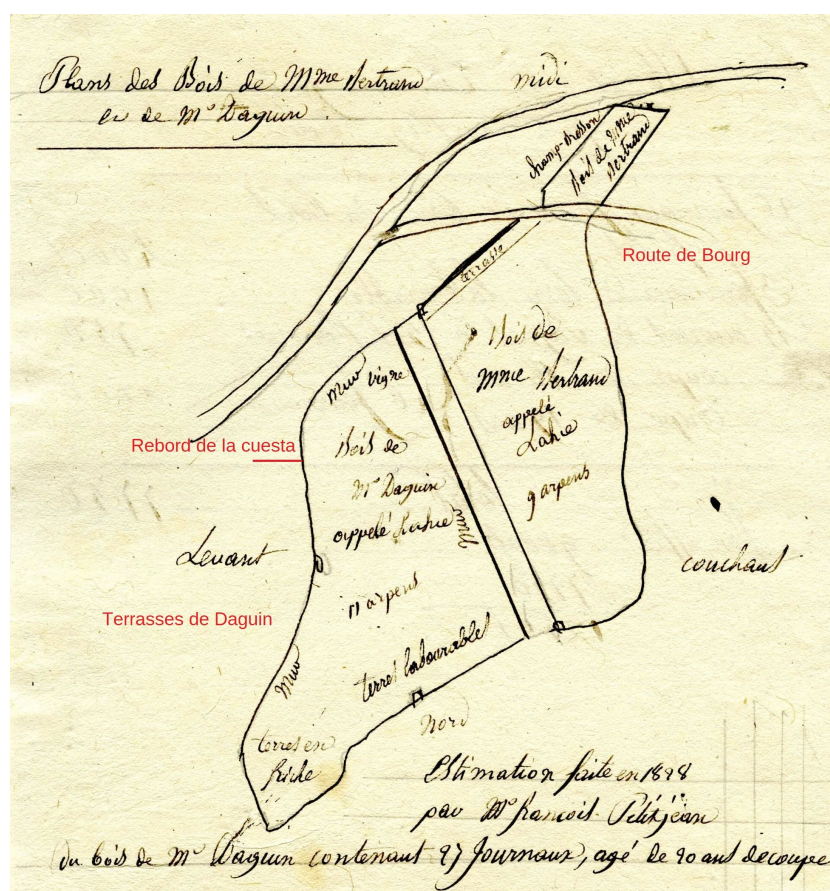 Plans des Bois de Mme Bertrand
et de Mr Daguin.
midi
champ-messon
Bois de Mme
Bertrand
Route de Bourg
terrasse
Mur vigne
Bois de
Mme Bertrand
appelé
Lahie
9 arpens
Rebord de la cuesta
Bois de
Mr Daguin
appelé Lahie
Mur
11 arpens
Levant
couchant
Terrasses de Daguin
terres labourables
Mur
terres en
friche
Nord
Estimation faite en 1828
par Mr francois Petitjean
du bois de Mr Daguin contenant 27 Journaux, agé de 20 ans decoupe